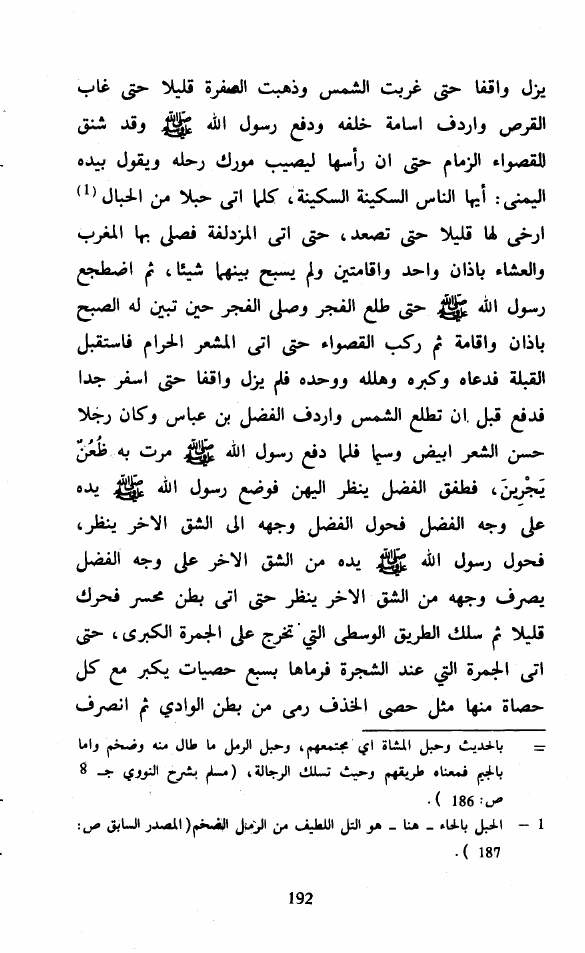 يزل واقفا حتى غربت الشمس وذهبت الصفرة قليلا حتى غاب
القرص واردف اسامة خلفه ودفع رسول الله ﷺ وقد شنق
للقصواء الزمام حتى ان رأسها ليصيب مورك رحله ويقول بيده
اليمنى : أيها الناس السكينة السكينة ، كلما اتى حبلا من الحبال (1)
ارخى لها قليلا حتى تصعد ، حتى اتى المزدلفة فصلى بها المغرب
والعشاء باذان واحد واقامتين ولم يسبح بينهما شيئا ، ثم اضطجع
رسول الله ﷺ حتى طلع الفجر وصلى الفجر حين تبين له الصبح
باذان واقامة ثم ركب القصواء حتى اتى المشعر الحرام فاستقبل
القبلة فدعاه وكبره وهلله ووحده فلم يزل واقفا حتى اسفر جدا
فدفع قبل ان تطلع الشمس واردف الفضل بن عباس وكان رجلا
حسن الشعر ابيض وسيما فلما دفع رسول الله ﷺ مرت به ظُعُنٌ
يَجْرِينَ ، فطفق الفضل ينظر اليهن فوضع رسول الله ﷺ يده
على وجه الفضل فحول الفضل وجهه الى الشق الاخر ينظر ،
فحول رسول الله ﷺ يده من الشق الاخر على وجه الفضل
يصرف وجهه من الشق الاخر ينظر حتى اتى بطن محسر فحرك
قليلا ثم سلك الطريق الوسطى التي تخرج على الجمرة الكبرى ، حتى
اتى الجمرة التي عند الشجرة فرماها بسبع حصيات يكبر مع كل
حصاة منها مثل حصى الخذف رمى من بطن الوادي ثم انصرف
= بالحديث وحبل المشاة اي مجتمعهم ، وحبل الرمل ما طال منه وضخم واما
بالجيم فمعناه طريقهم وحيث تسلك الرجالة ، ( مسلم بشرح النووي جـ 8
ص : 186 ) .
1 - الحبل بالحاء - هنا - هو التل اللطيف من الرمل الضخم ( المصدر السابق ص :
187 ) .
192